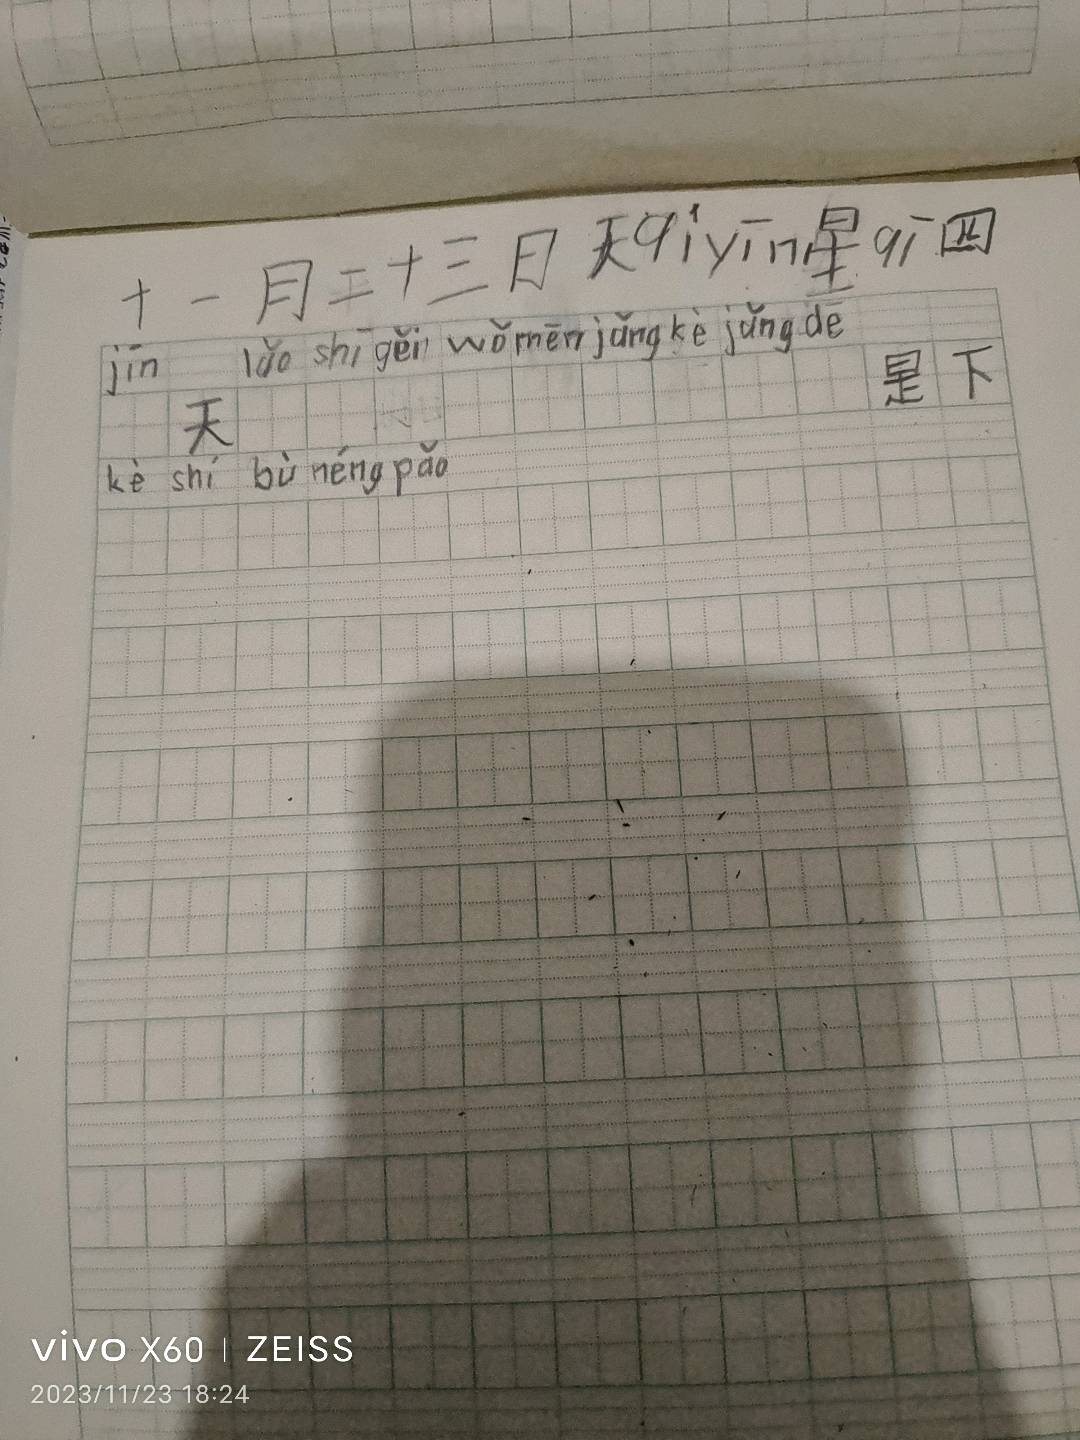 十一月二十三日 天qì yīn 星qī 四
jīn lǎo shī gěi wǒ mēn jǎng kè jǎng dē
天 是 下
kè shí bù néng pǎo
vivo X60 | ZEISS
2023/11/23 18:24